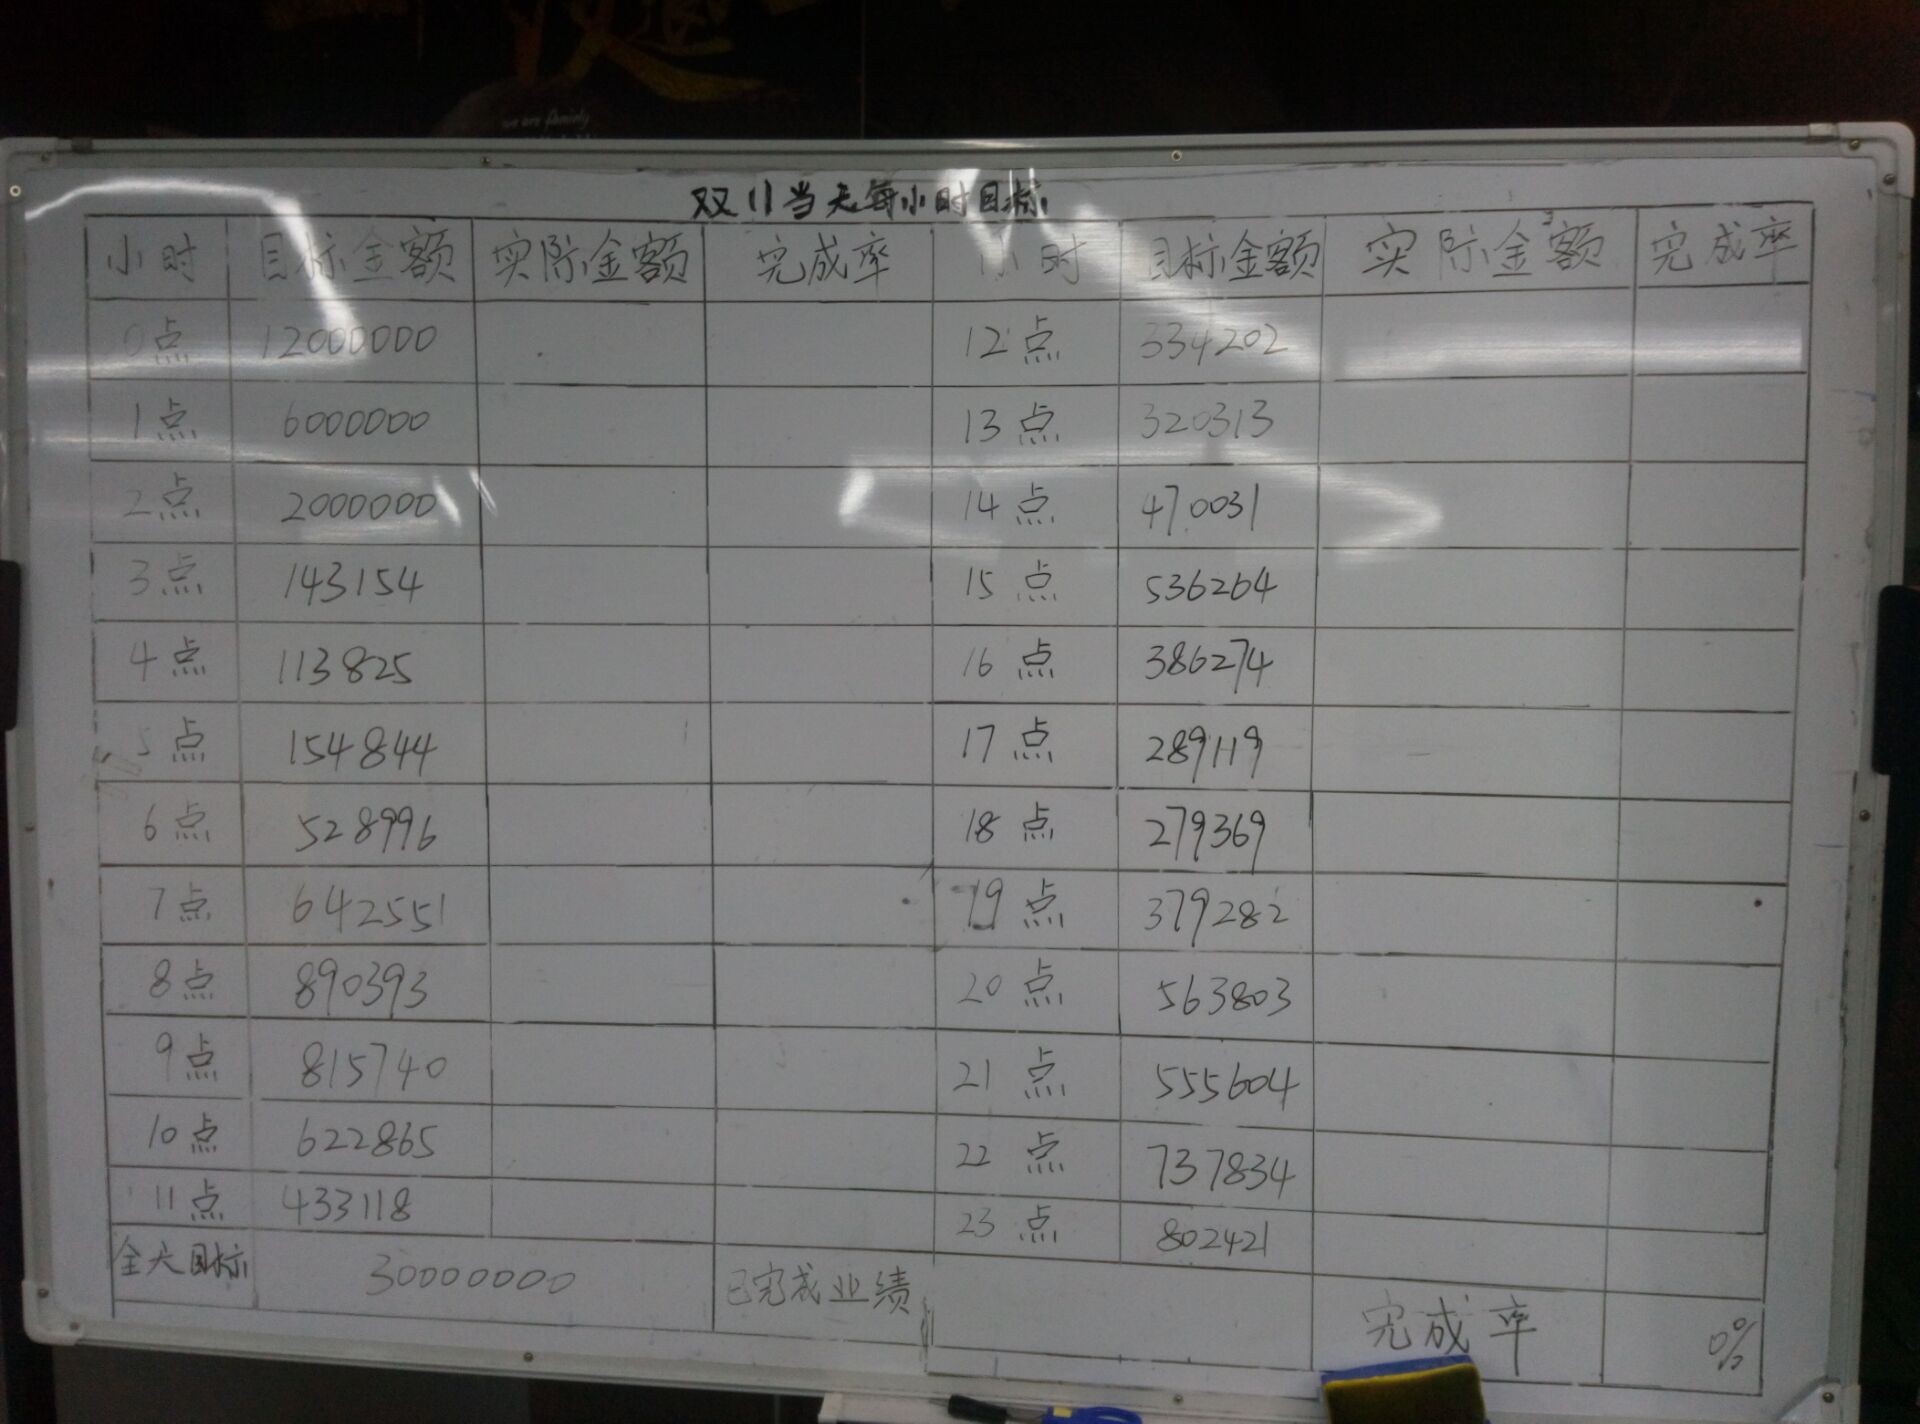 we are faminly
双11当天每小时目标
小时 目标金额 实际金额 完成率 小时 目标金额 实际金额 完成率
0点 12000000 12点 334202
1点 6000000 13点 320313
2点 2000000 14点 470031
3点 143154 15点 536264
4点 113825 16点 386274
5点 154844 17点 289119
6点 528996 18点 279369
7点 642551 19点 379282
8点 890393 20点 563803
9点 815740 21点 555604
10点 622865 22点 737834
11点 433118 23点 802421
全天目标 30000000 已完成业绩 完成率 %